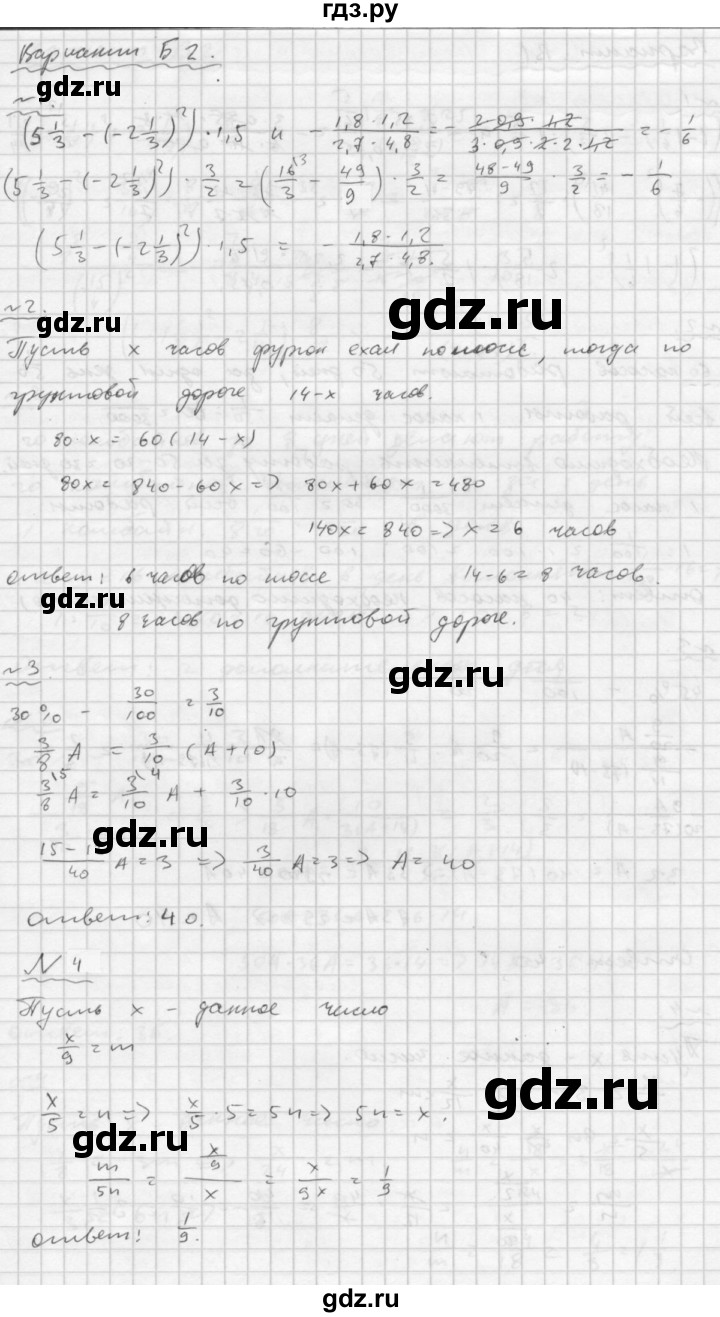 гдз.ру
Вариант Б 2.
№1.
(5 1/3 - (-2 1/3)²) · 1,5 и - (1,8 · 1,2)/(2,7 · 4,8) = - (2 · 0,9 · 1,2)/(3 · 0,9 · 2 · 2 · 1,2) = - 1/6
(5 1/3 - (-2 1/3)²) · 3/2 = (16\3/3 - 49/9) · 3/2 = (48-49)/9 · 3/2 = - 1/6
(5 1/3 - (-2 1/3)²) · 1,5 = - (1,8 · 1,2)/(2,7 · 4,8).
№2.
gdz.ru
Пусть x часов фургон ехал по шоссе, тогда по
грунтовой дороге 14-x часов.
80x = 60(14-x)
80x = 840 - 60x => 80x + 60x = 480
140x = 840 => x = 6 часов
ответ: 6 часов по шоссе 14-6 = 8 часов.
8 часов по грунтовой дороге.
№3
30% - 30/100 = 3/10
3/8 A = 3/10 (A+10)
3\5/8 A = 3\4/10 A + 3/10 · 10
(15-1)/40 A = 3 => 3/40 A = 3 => A = 40
ответ: 40.
N 4
Пусть x - данное число
x/9 = m
x/5 = n => x/5 · 5 = 5n => 5n = x.
m/5n = (x/9)/x = x/9x = 1/9
ответ: 1/9.
gdz.ru
gdz.ru
gdz.ru
gdz.ru
gdz.ru
gdz.ru
gdz.ru
gdz.ru